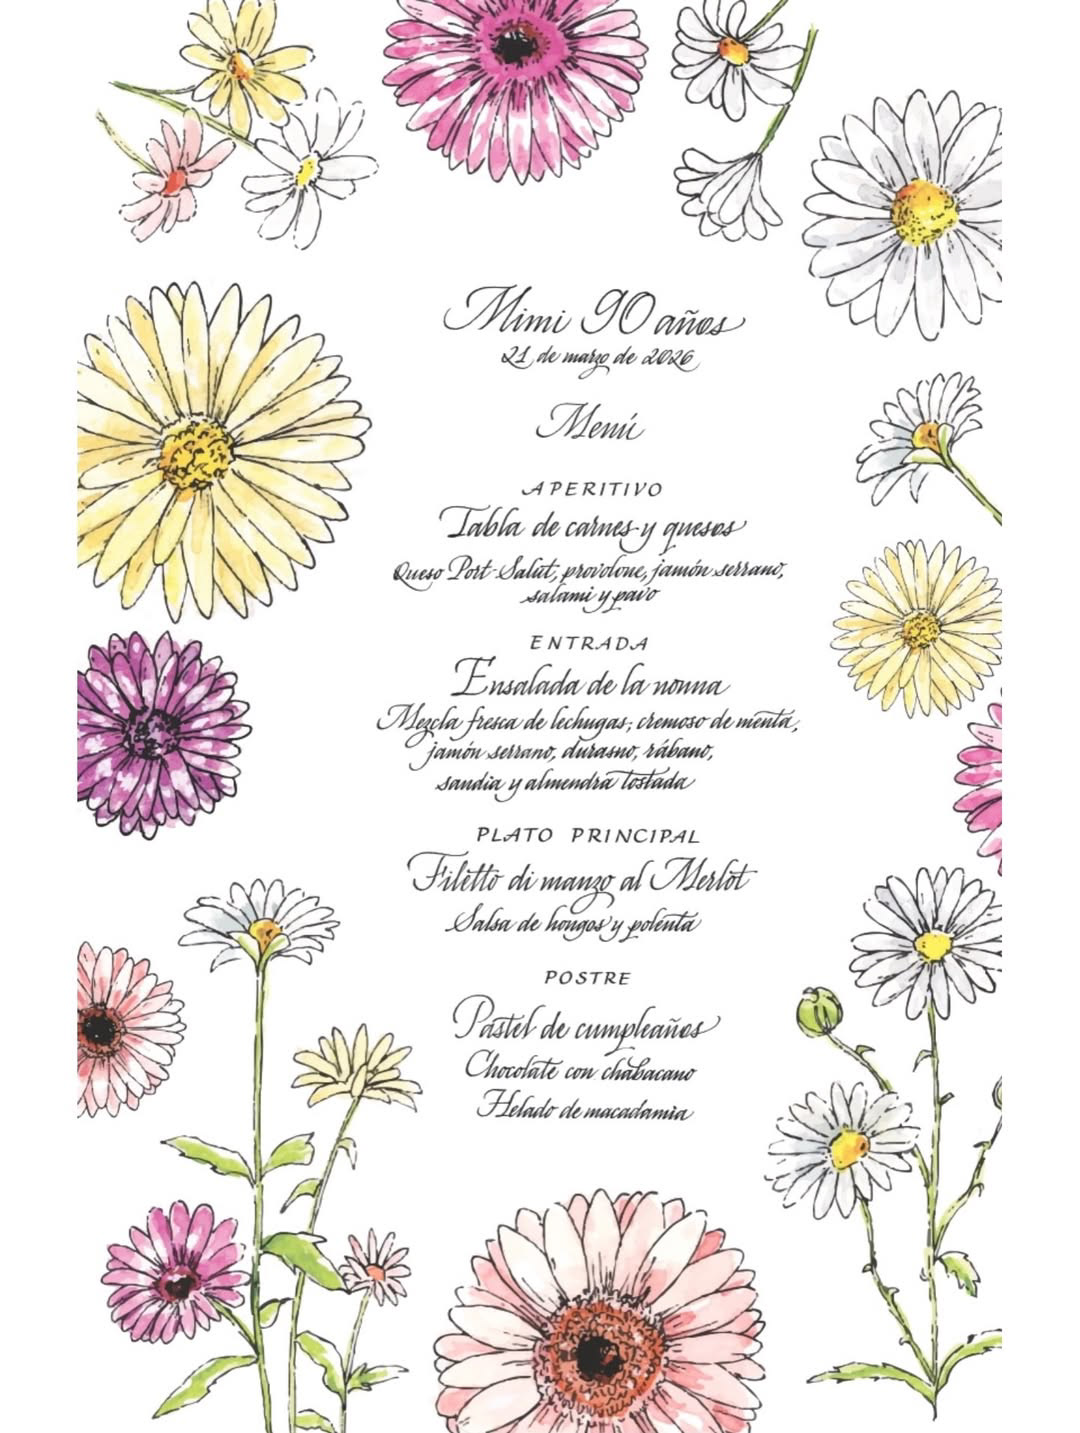 Mimi 90 años
21 de marzo de 2026
Menú
APERITIVO
Tabla de carnes y quesos
Queso Port-Salut, provolone, jamón serrano,
salami y pavo
ENTRADA
Ensalada de la nonna
Mezcla fresca de lechugas; cremoso de menta,
jamón serrano, durasno, rábano,
sandia y almendra tostada
PLATO PRINCIPAL
Filetto di manzo al Merlot
Salsa de hongos y polenta
POSTRE
Pastel de cumpleaños
Chocolate con chabacano
Helado de macadamia